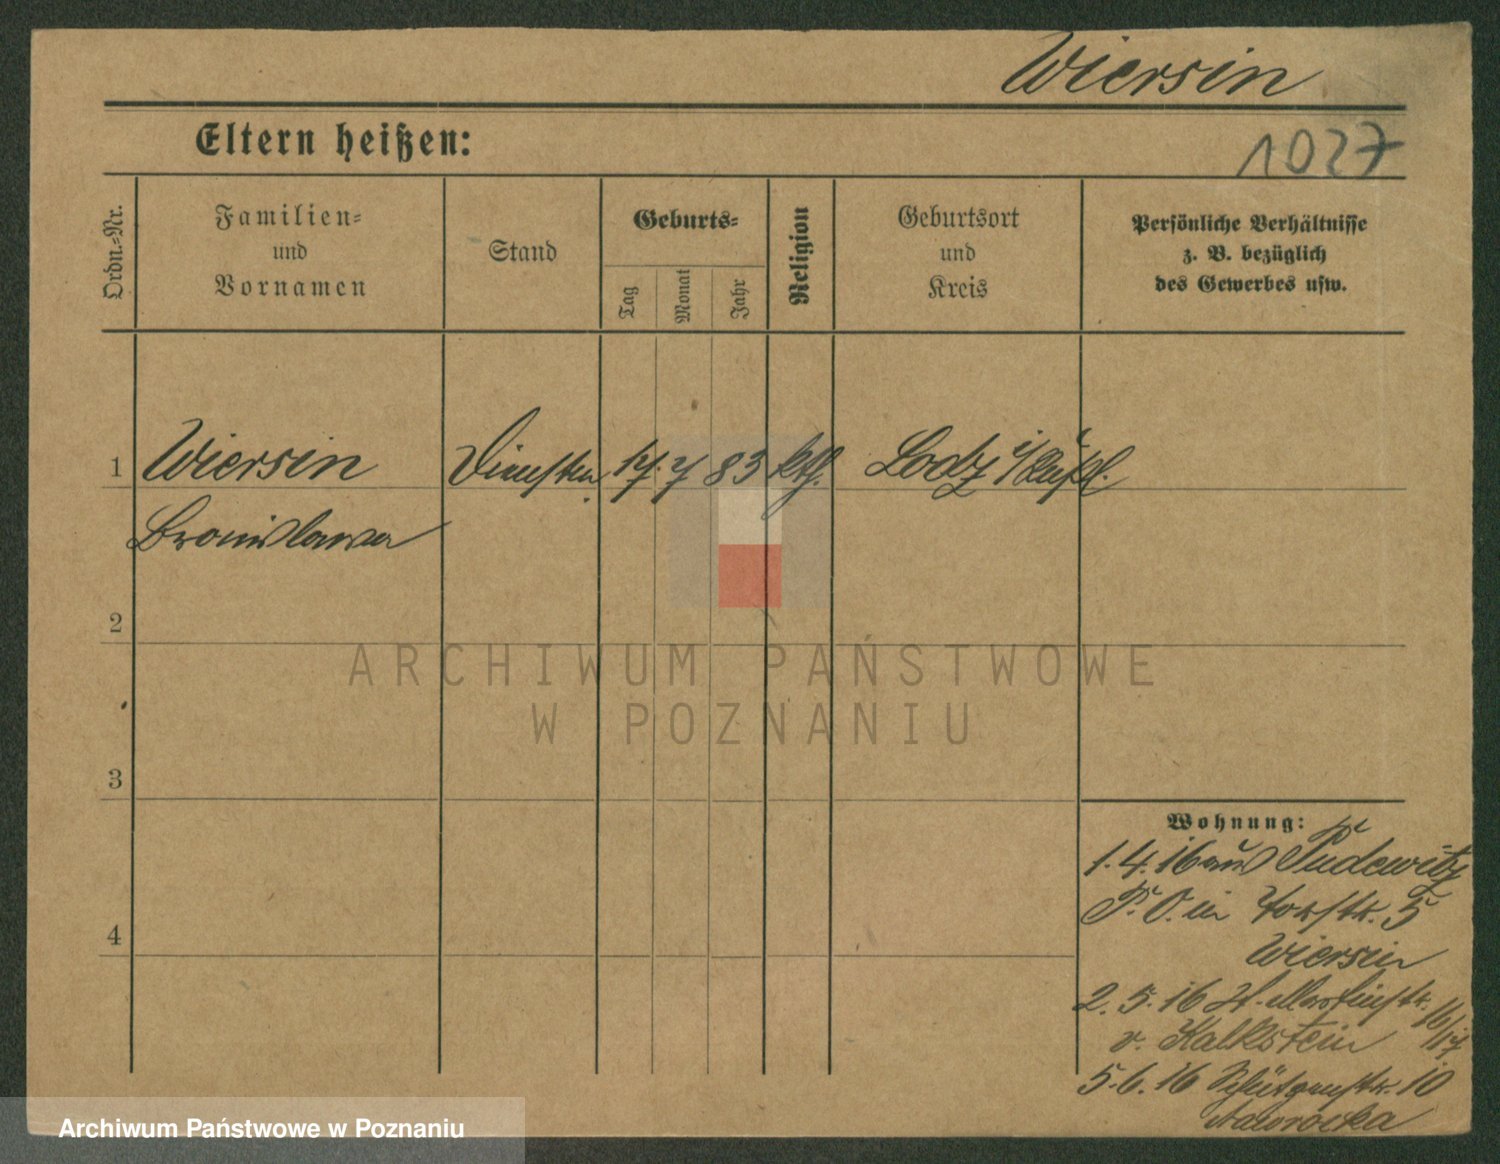 Wiersin
Eltern heißen:
1027
Ordn.-Nr.
Familien-
und
Vornamen
Stand
Geburts-
Tag
Monat
Jahr
Religion
Geburtsort
und
Kreis
Persönliche Verhältnisse
z. B. bezüglich
des Gewerbes usw.
1
Wiersin
17. 7 83
kth.
Lodz i/
Bronislawa
2
ARCHIWUM PAŃSTWOWE
W POZNANIU
3
Wohnung:
1. 4. 16 aus Pudewitz
P. O. in 5
Wiersin
4
2. 5. 16 St. Martinstr. 16/17
v. Kalkstein
5. 6. 16 Schützenstr. 10
Archiwum Państwowe w Poznaniu